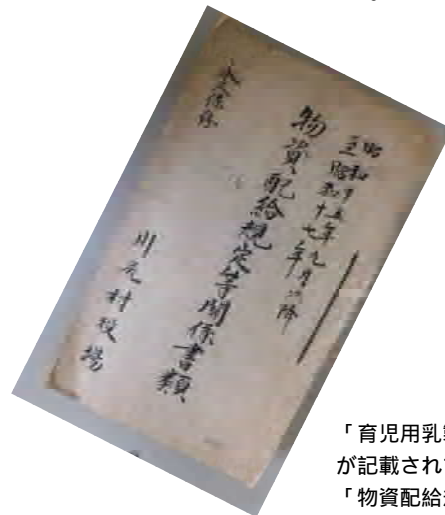 昭和十五年九月以降
至昭和十七年
物資配給規定等関係書類
永久保存
川元村役場
「育児用乳
が記載され
「物資配給